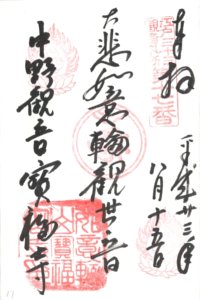 奉拝
平成廿三年
八月十五日
大悲如意輪観世音
中野観音寳福寺